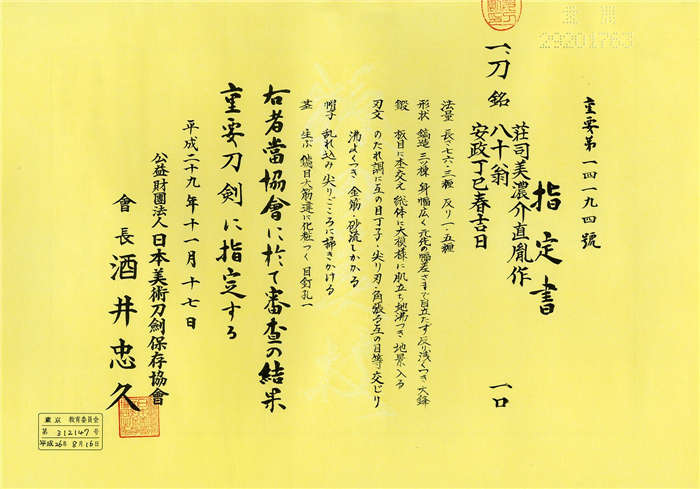 重要第一四一九四號
指定書
一、刀 銘 荘司美濃介直胤作
八十翁
安政丁巳春吉日
一口
法量 長さ七六・三糎 反り一・五糎
形状 鎬造 三ツ棟 身幅広く 元先の幅差さまで目立たず 反り浅くつき 大鋒
鍛 板目に杢交え 総体に大模様に肌立ち 地沸つき 地景入る
刃文 のたれ調に互の目丁子・尖り刃・角張る互の目等交じり
沸よくつき 金筋・砂流しかかる
帽子 乱れ込み 尖りごころに掃きかける
茎 生ぶ 鑢目大筋違に化粧つく 目釘孔一
右者當協會に於て審査の結果
重要刀剣に指定する
平成二十九年十一月十七日
公益財團法人日本美術刀劍保存協會
會長 酒井忠久
東京 教育委員会
第 312147 号
平成26年 8月16日